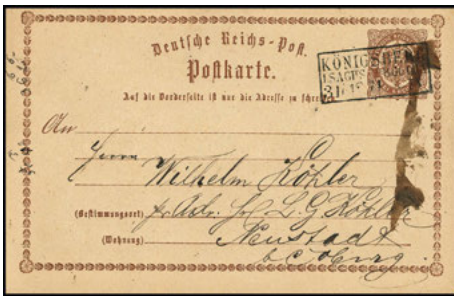 Deutsche Reichs-Post.
Postkarte.
KÖNIGSBERG
Auf die Vorderseite ist nur die Adresse zu schre
An
Herrn
Wilhelm Köhler
(Bestimmungsort) pr. Adr. L. G Köhler
(Wohnung) Neustadt
b/Coburg